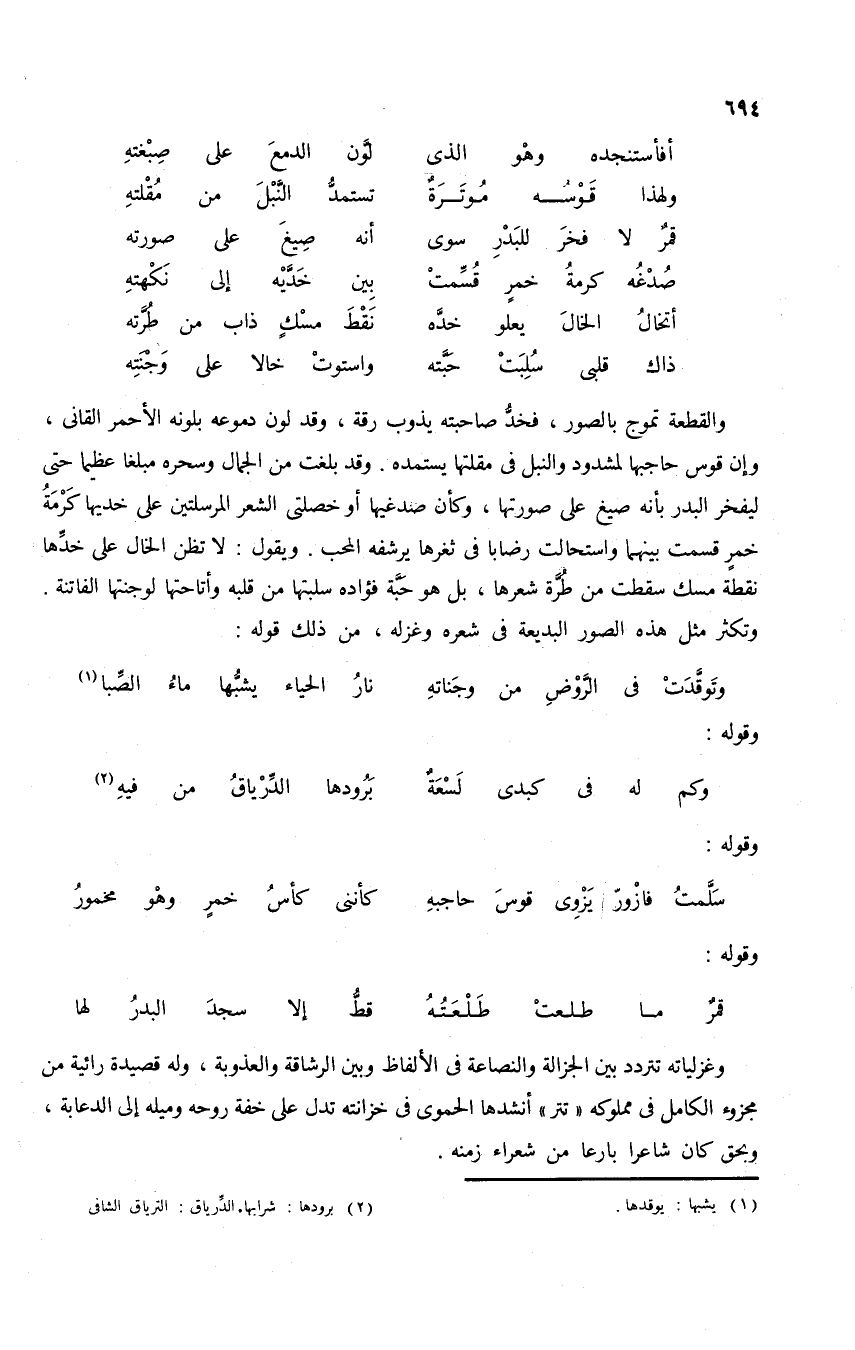 ٦٩٤
أفأستنجده وهْو الذى لوَّن الدمعَ على صِبْغتهِ
ولهذا قَوْسُه مُوتَرَةٌ تستمدُّ النَّبْلَ من مُقْلتهِ
قمرٌ لا فخرَ للبَدْرِ سوى أنه صِيغَ على صورته
صُدْغُه كرمةُ خمرٍ قُسِّمتْ بين خَدَّيْه إلى نَكْهتهِ
أتخالُ الخالَ يعلو خدَّه نَقْطَ مسْكٍ ذاب من طُرَّته
ذاك قلبى سُلِبَتْ حَبَّته واستوتْ خالا على وَجْنَتِه
والقطعة تموج بالصور ، فخدُّ صاحبته يذوب رقة ، وقد لون دموعه بلونه الأحمر القانى ،
وإن قوس حاجبها لمشدود والنبل فى مقلتها يستمده . وقد بلغت من الجمال وسحره مبلغا عظيما حتى
ليفخر البدر بأنه صيغ على صورتها ، وكأن صدغيها أو خصلتى الشعر المرسلتين على خديها كَرْمَةُ
خمرٍ قسمت بينهما واستحالت رضابا فى ثغرها يرشفه المحب . ويقول : لا تظن الخال على خدِّها
نقطة مسك سقطت من طُرَّة شعرها ، بل هو حَبَّة فؤاده سلبتها من قلبه وأتاحتها لوجنتها الفاتنة .
وتكثر مثل هذه الصور البديعة فى شعره وغزله ، من ذلك قوله :
وتَوقَّدَتْ فى الرَّوْضِ من وجَناتهِ نارُ الحياء يشبُّها ماءُ الصِّبا(١)
وقوله :
وكم له فى كبدى لَسْعَةٌ بَرُودها الدِّرْياقُ من فيهِ(٢)
وقوله :
سَلَّمتُ فازْورّ يَزْوِى قوسَ حاجبهِ كأننى كأسُ خمرٍ وهْو مخمورُ
وقوله :
قمرٌ ما طلعتْ طَلْعَتُهُ قطُّ إلا سجدَ البدرُ لها
وغزلياته تتردد بين الجزالة والنصاعة فى الألفاظ وبين الرشاقة والعذوبة ، وله قصيدة رائية من
مجزوء الكامل فى مملوكه « تتر » أنشدها الحموى فى خزانته تدل على خفة روحه وميله إلى الدعابة ،
وبحق كان شاعرا بارعا من شعراء زمنه .
(١) يشبها : يوقدها . (٢) برودها : شرابها. الدِّرياق : الترياق الشافى